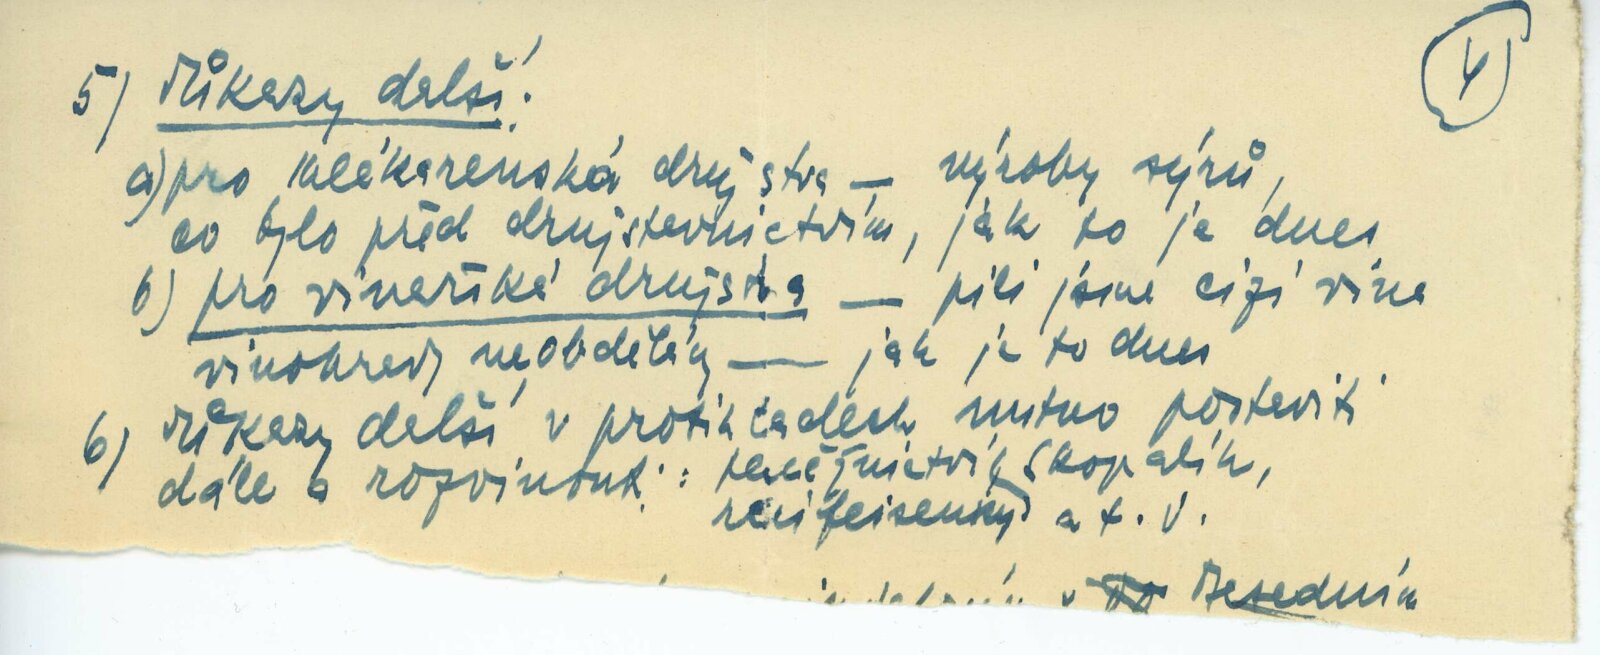 4
5) Důkazy další:
a) pro mlékarenská družstva — výroby sýrů,
co bylo před družstevnictvím, jak to je dnes
b) pro vinařská družstva — pili jsme cizí vína
vinohrady neobdělány — jak je to dnes
6) Důkazy další v protikladech nutno postaviti
dále a rozvinouti: Skopalík,
raiffeisenky a t. d.
Besedním